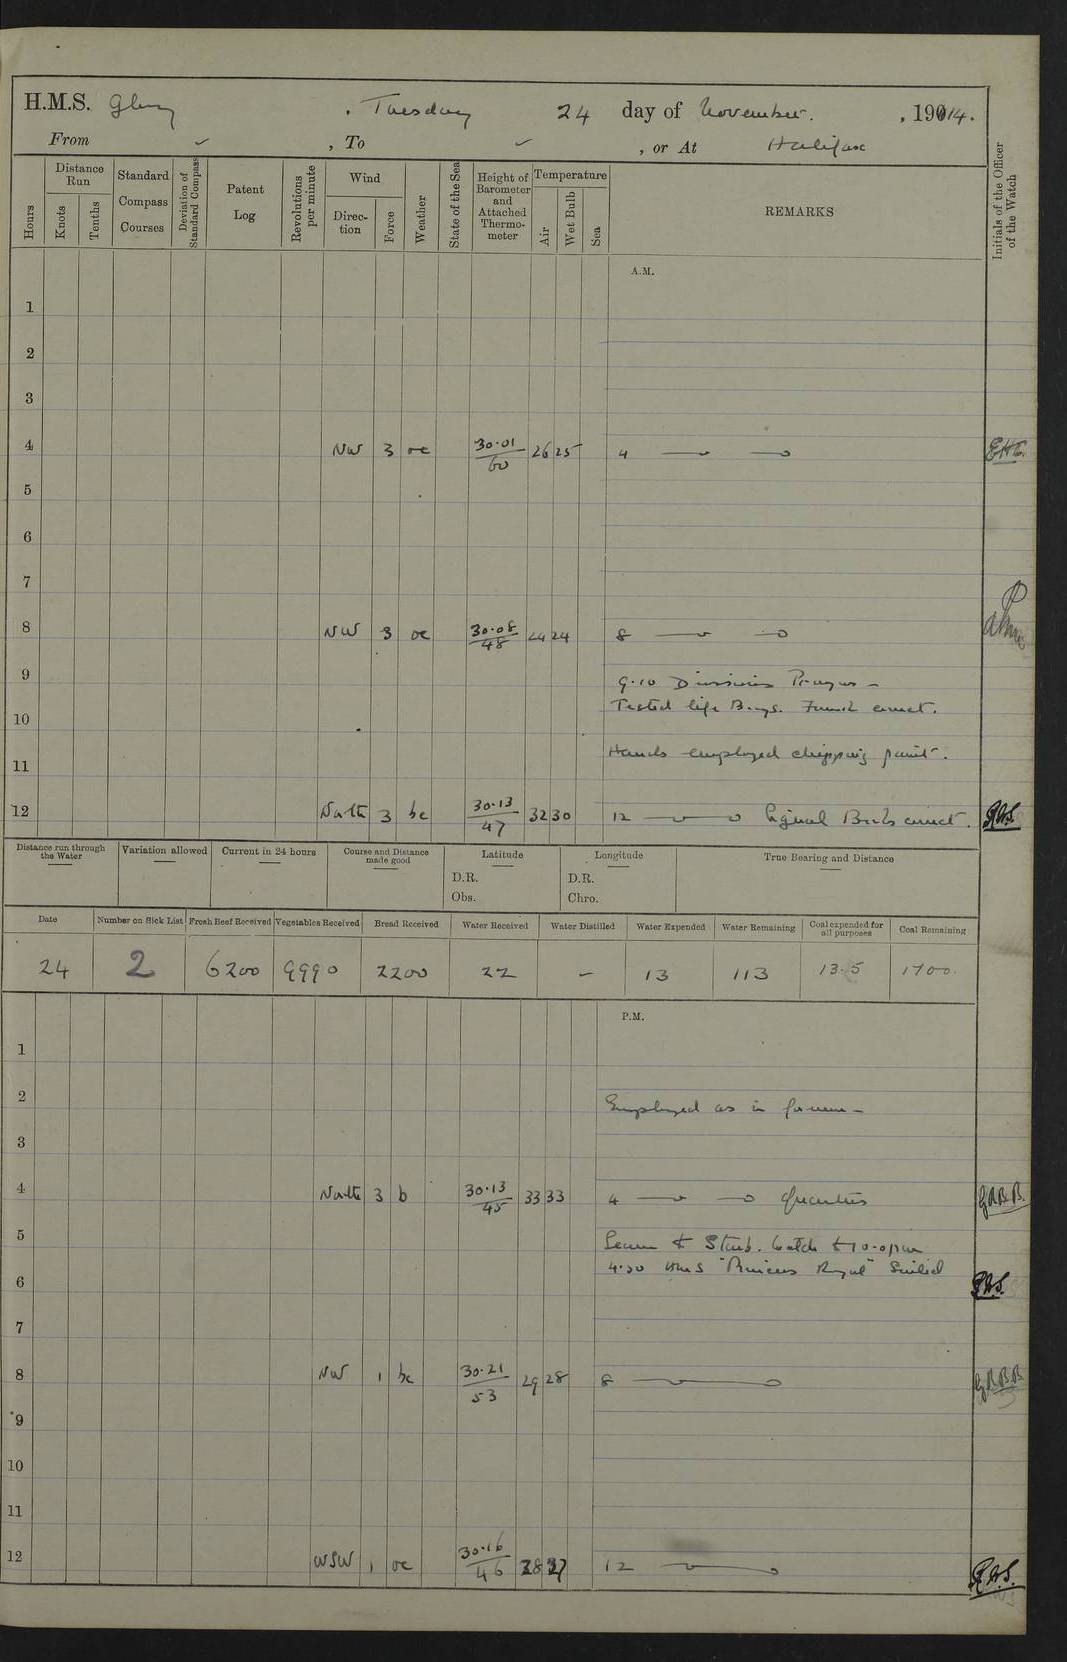 H.M.S. Glory, Tuesday 24 day of November, 1914.
From ✓, To ✓, or At Halifax
Hours
Distance Run
Knots
Tenths
Standard Compass Courses
Deviation of Standard Compass
Patent Log
Revolutions per minute
Wind
Direction
Force
Weather
State of the Sea
Height of Barometer and Attached Thermometer
Temperature
Air
Wet Bulb
Sea
REMARKS
Initials of the Officer of the Watch
A.M.
1
2
3
4 NW 3 oc 30.01/60 26 25 4
5
6
7
8 NW 3 oc 30.08/48 24 24 8
9 9.10 Divisions Prayers –
Tested life Buoys. Found correct.
10
Hands employed chipping paint.
11
12 North 3 bc 30.13/47 32 30 12 Signal Books correct. R.W.S.
Distance run through the Water
Variation allowed
Current in 24 hours
Course and Distance made good
Latitude
D.R.
Obs.
Longitude
D.R.
Chro.
True Bearing and Distance
Date Number on Sick List Fresh Beef Received Vegetables Received Bread Received Water Received Water Distilled Water Expended Water Remaining Coal expended for all purposes Coal Remaining
24 2 6200 9990 2200 22 – 13 113 13.5 1700.
P.M.
1
2 Employed as in forenoon –
3
4 North 3 b 30.13/45 33 33 4 Quarters G.R.B.B.
5 Leave to Starb. Watch to 10.0 pm
4.30 HMS "Princess Royal" Sailed
6 R.W.S.
7
8 NW 1 bc 30.21/53 29 28 8 G.R.B.B.
9
10
11
12 WSW 1 oc 30.16/46 28 27 12 R.W.S.